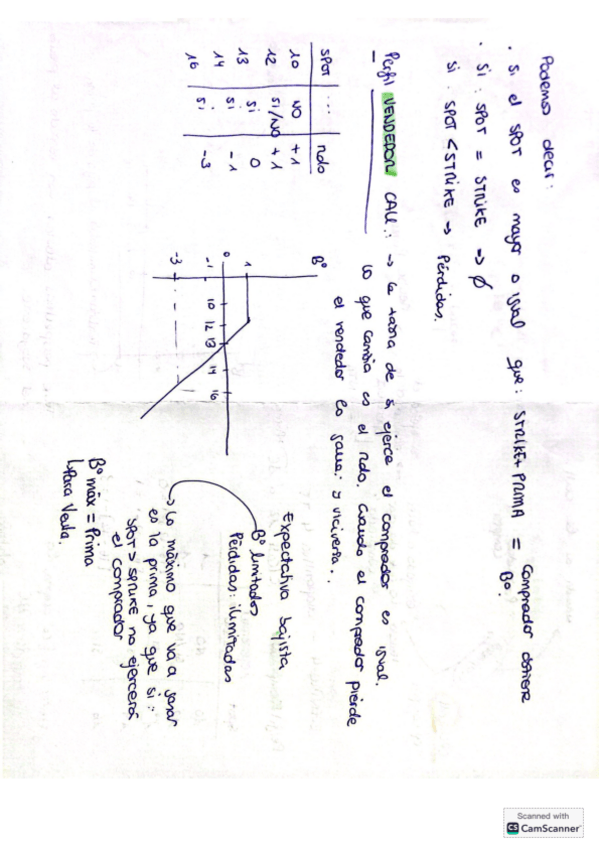 Podemos decir:
· Si el SPOT es mayor o igual que: STRIKE + PRIMA = Comprador obtiene Bº.
· Si: SPOT = STRIKE → Ø
Si: SPOT < STRIKE → Pérdidas.
Perfil VENDEDOR CALL: → la tabla de si ejerce el comprador es igual.
lo que cambia es el rtdo. Cuando el comprador pierde
el vendedor lo gana; y viceversa...
SPOT ... rtdo
10 NO +1
12 SI/NO +1
13 Si 0
14 Si -1
16 Si -3
Bº
1
0
-1
-3
10 12 13 14 16
Expectativa bajista
Bº limitados
Pérdidas: ilimitadas
→ Lo máximo que va a ganar
es la prima, ya que si:
SPOT > SPRIKE no ejercerá
el comprador
Bº máx = Prima
↳ Para Venta.
Scanned with
CS CamScanner